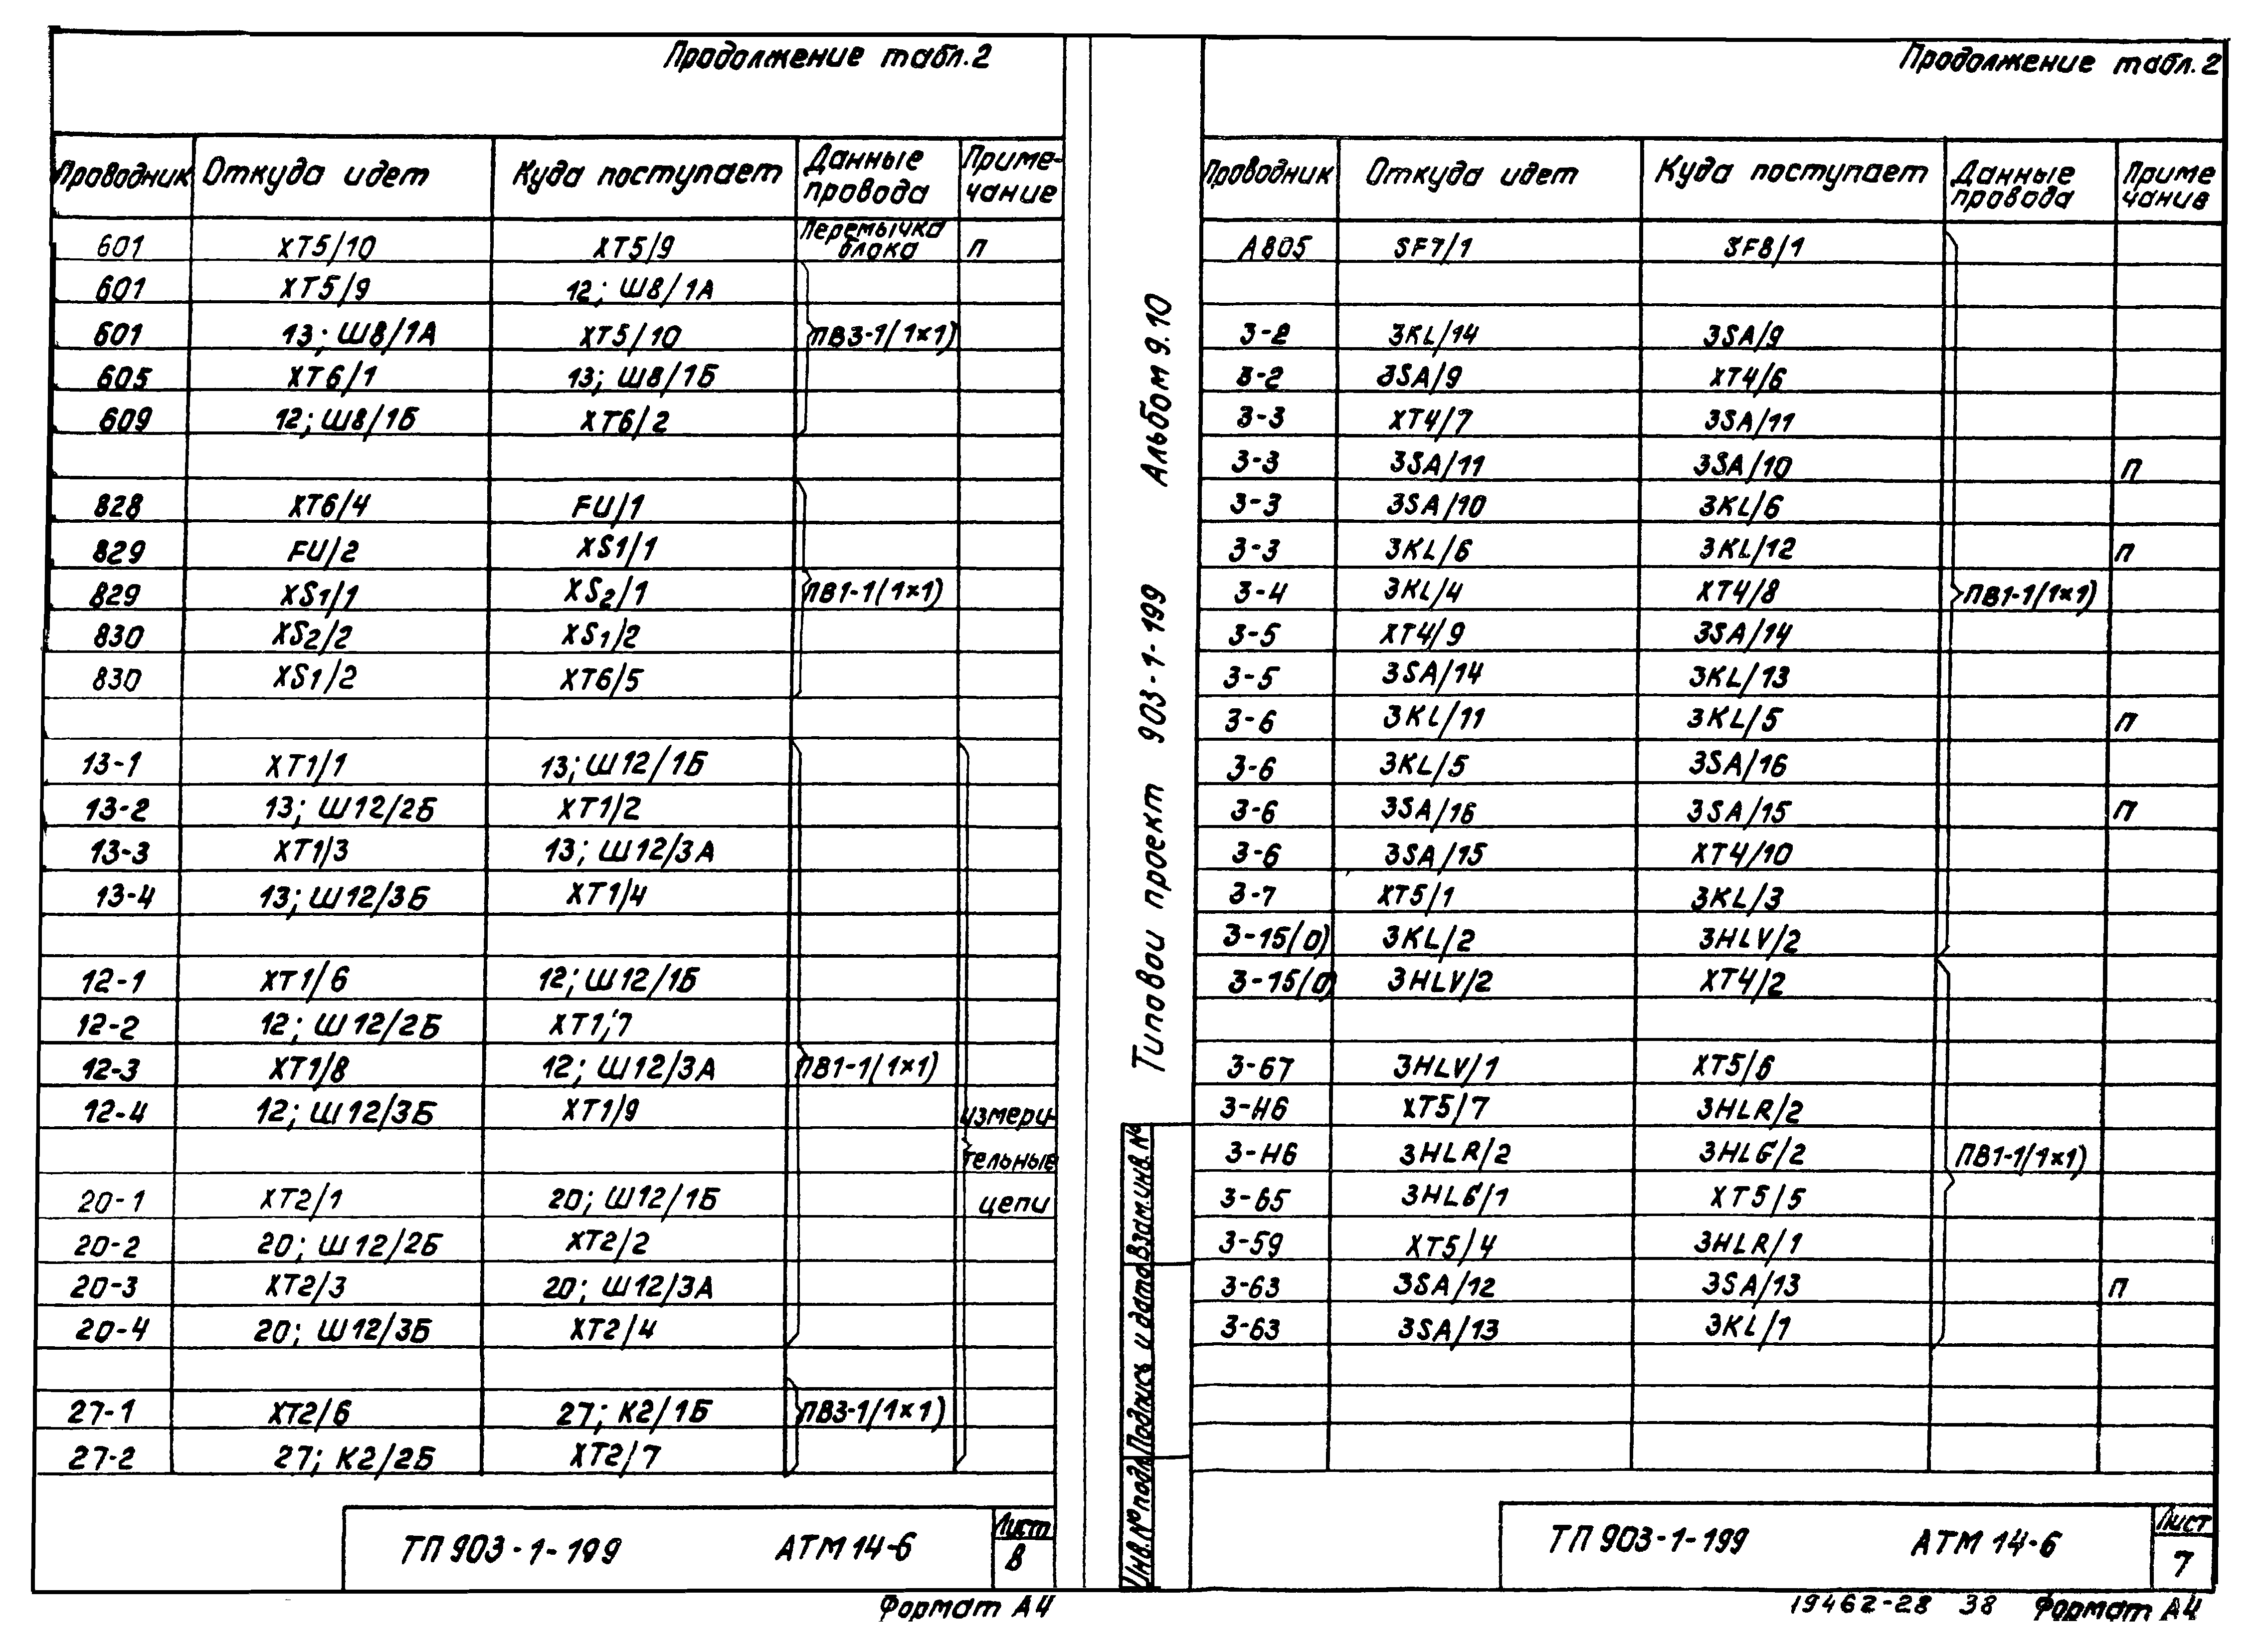 Продолжение табл.2
Проводник Откуда идет Куда поступает Данные провода Приме-чание
601 XT5/10 XT5/9 Перемычка блока п
601 XT5/9 12; Ш8/1А
601 13; Ш8/1А XT5/10 ПВ3-1(1×1)
605 XT6/1 13; Ш8/1Б
609 12; Ш8/1Б XT6/2
828 XT6/4 FU/1
829 FU/2 XS1/1
829 XS1/1 XS2/1 ПВ1-1(1×1)
830 XS2/2 XS1/2
830 XS1/2 XT6/5
13-1 XT1/1 13; Ш12/1Б
13-2 13; Ш12/2Б XT1/2
13-3 XT1/3 13; Ш12/3А
13-4 13; Ш12/3Б XT1/4
12-1 XT1/6 12; Ш12/1Б
12-2 12; Ш12/2Б XT1/7
12-3 XT1/8 12; Ш12/3А ПВ1-1(1×1)
12-4 12; Ш12/3Б XT1/9 измери-
тельные
20-1 XT2/1 20; Ш12/1Б цепи
20-2 20; Ш12/2Б XT2/2
20-3 XT2/3 20; Ш12/3А
20-4 20; Ш12/3Б XT2/4
27-1 XT2/6 27; К2/1Б ПВ3-1(1×1)
27-2 27; К2/2Б XT2/7
ТП 903-1-199 АТМ 14-6 Лист
8
Формат А4
Типовой проект 903-1-199 Альбом 9.10
Инв.№ подл. Подпись и дата Взам.инв.№
Продолжение табл.2
Проводник Откуда идет Куда поступает Данные провода Приме чание
А805 SF7/1 SF8/1
3-2 3KL/14 3SA/9
3-2 3SA/9 XT4/6
3-3 XT4/7 3SA/11
3-3 3SA/11 3SA/10 п
3-3 3SA/10 3KL/6
3-3 3KL/6 3KL/12 п
3-4 3KL/4 XT4/8 ПВ1-1(1×1)
3-5 XT4/9 3SA/14
3-5 3SA/14 3KL/13
3-6 3KL/11 3KL/5 п
3-6 3KL/5 3SA/16
3-6 3SA/16 3SA/15 п
3-6 3SA/15 XT4/10
3-7 XT5/1 3KL/3
3-15(0) 3KL/2 3HLV/2
3-15(0) 3HLV/2 XT4/2
3-67 3HLV/1 XT5/6
3-Н6 XT5/7 3HLR/2
3-Н6 3HLR/2 3HLG/2 ПВ1-1(1×1)
3-65 3HLG/1 XT5/5
3-59 XT5/4 3HLR/1
3-63 3SA/12 3SA/13 п
3-63 3SA/13 3KL/1
ТП 903-1-199 АТМ 14-6 Лист
7
19462-28 38 Формат А4